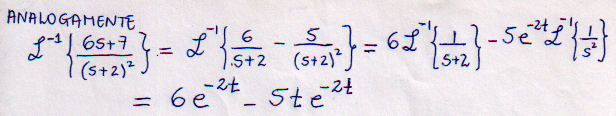 ANALOGAMENTE
ℒ⁻¹{(6s+7)/(s+2)²} = ℒ⁻¹{6/(s+2) - 5/(s+2)²} = 6ℒ⁻¹{1/(s+2)} - 5e⁻²ᵗℒ⁻¹{1/s²}
= 6e⁻²ᵗ - 5te⁻²ᵗ